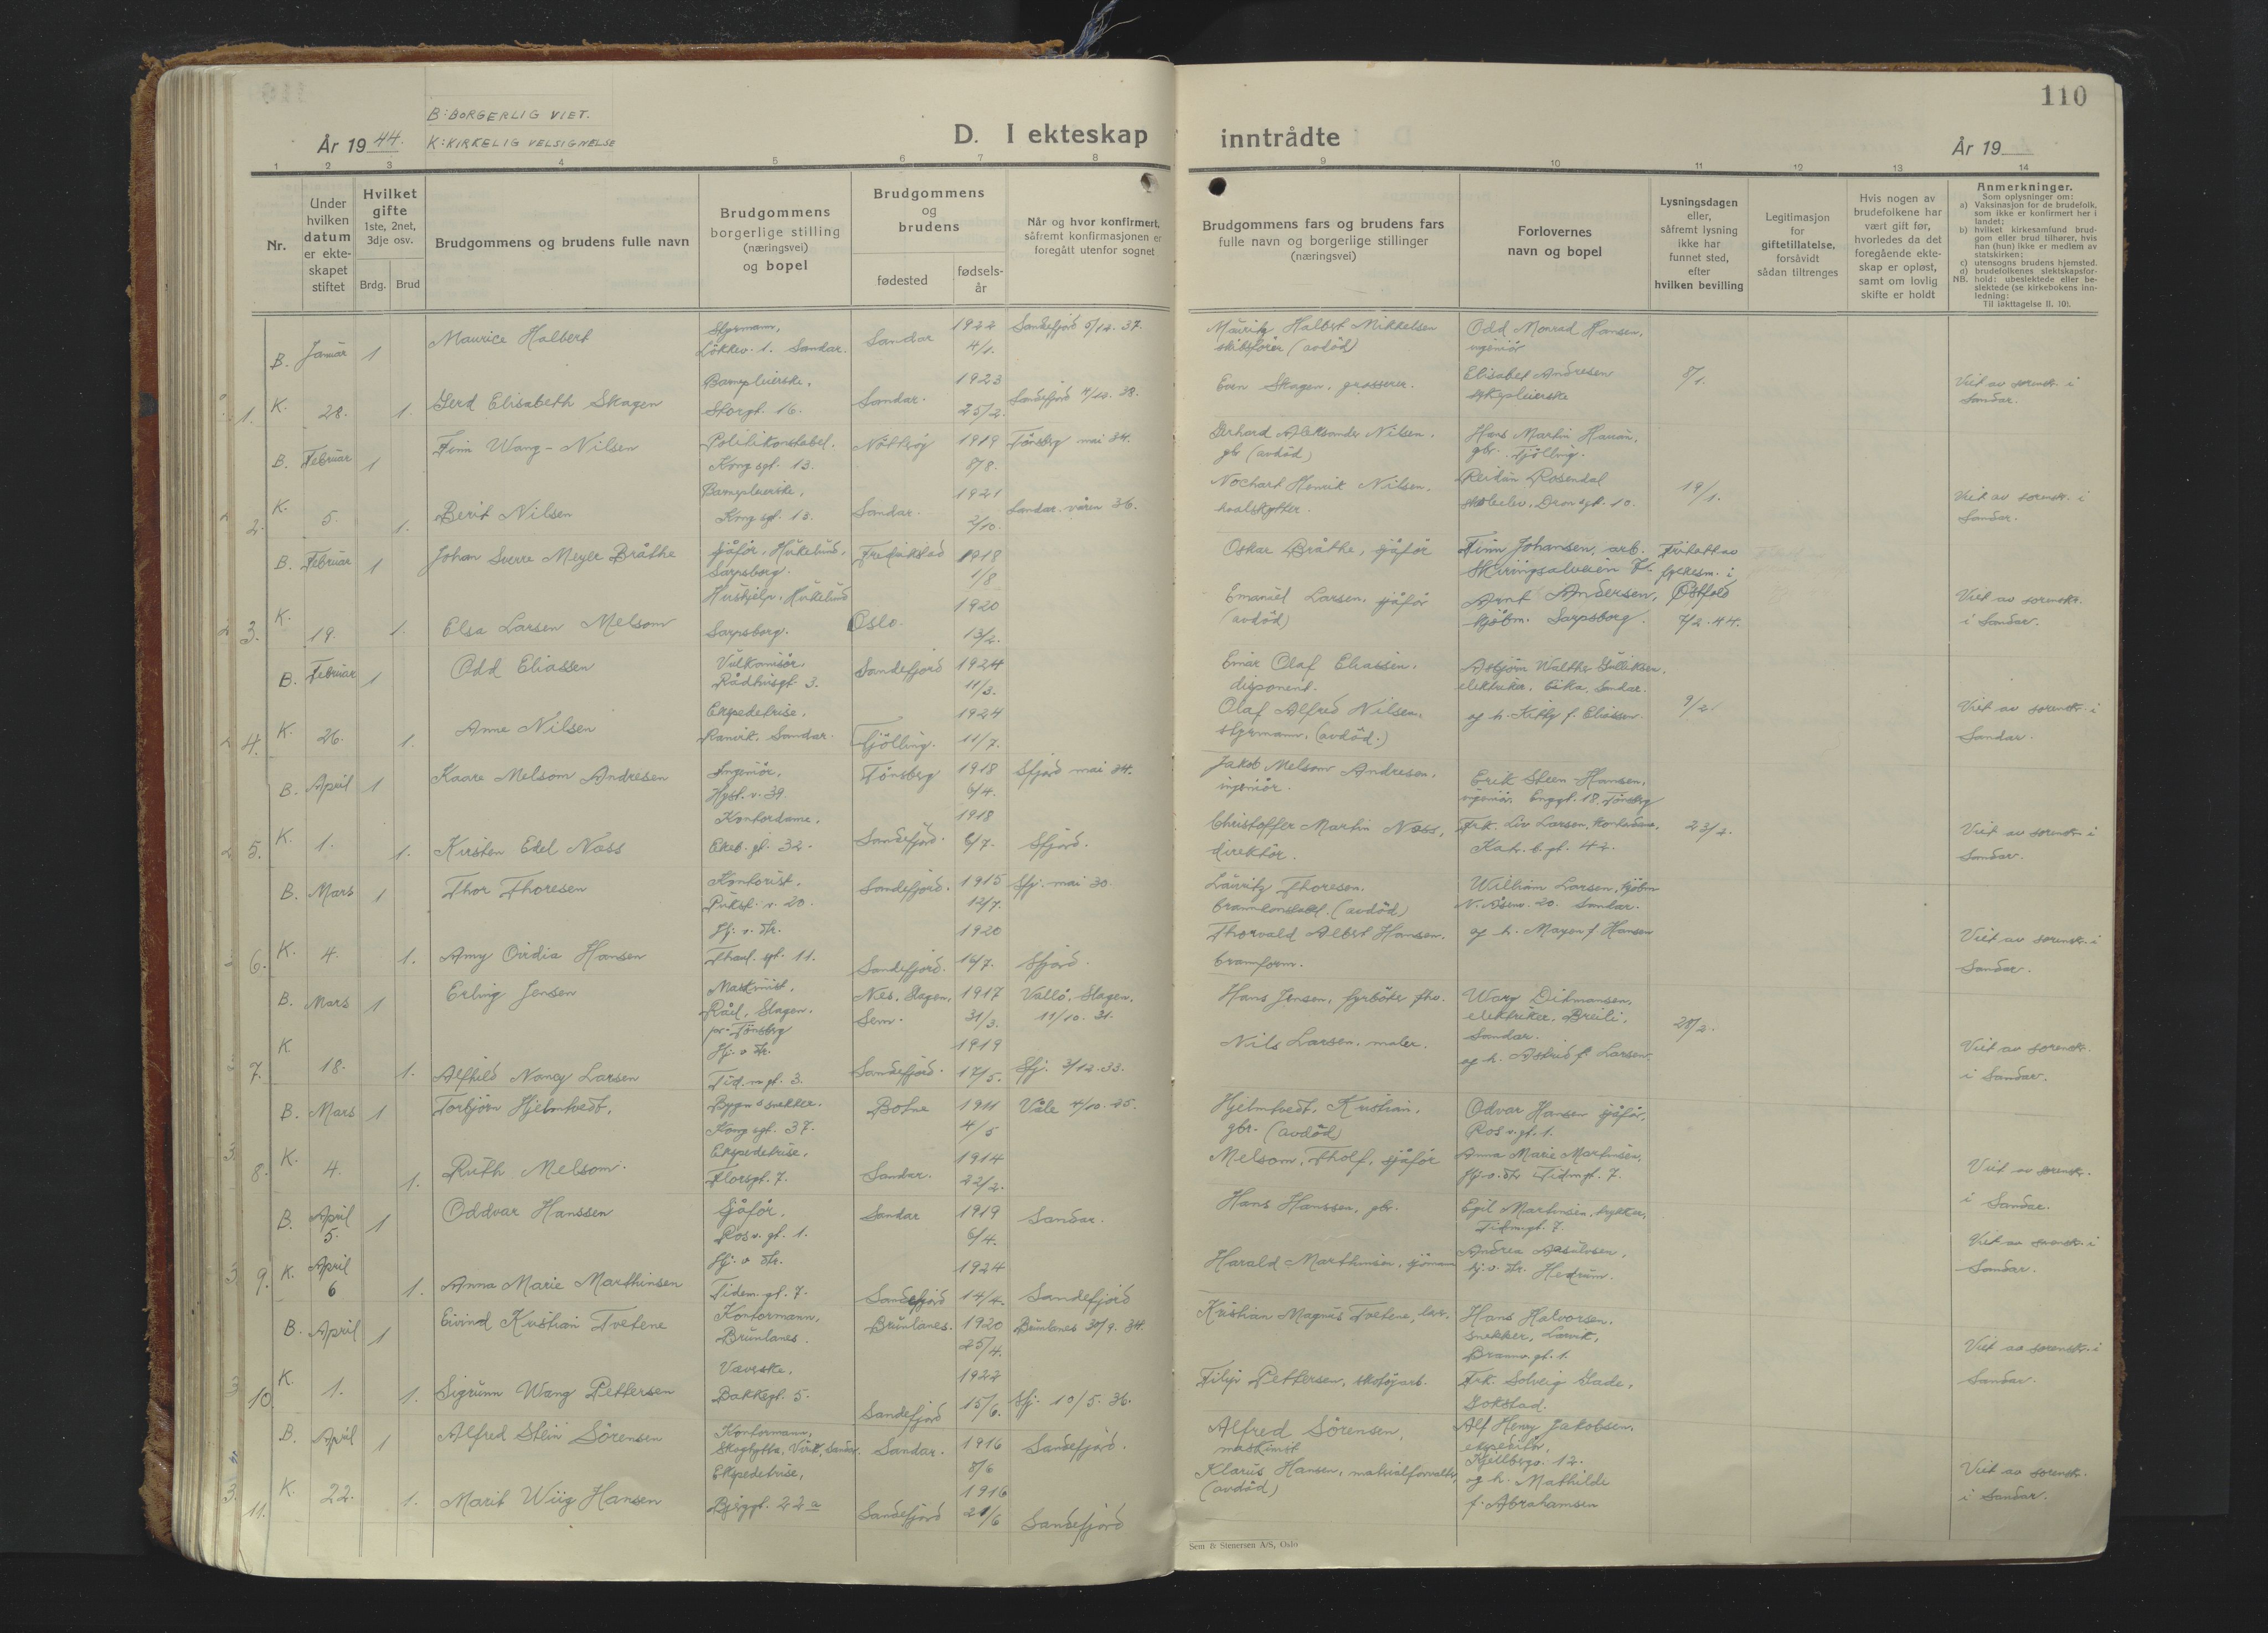 110
B: BORGERLIG VIET.
K: KIRKELIG VELSIGNELSE
År 1944.
D. I ekteskap inntrådte
År 19
1 2 3 4 5 6 7 8 9 10 11 12 13 14
Nr.
Under
hvilken
datum
er ekte-
skapet
stiftet
Hvilket
gifte
1ste, 2net,
3dje osv.
Brdg. Brud
Brudgommens og brudens fulle navn
Brudgommens
borgerlige stilling
(næringsvei)
og bopel
Brudgommens
og
brudens
fødested
fødsels-
år
Når og hvor konfirmert,
såfremt konfirmasjonen er
foregått utenfor sognet
Brudgommens fars og brudens fars
fulle navn og borgerlige stillinger
(næringsvei)
Forlovernes
navn og bopel
Lysningsdagen
eller,
såfremt lysning
ikke har
funnet sted,
efter
hvilken bevilling
Legitimasjon
for
giftetillatelse,
forsåvidt
sådan tiltrenges
Hvis nogen av
brudefolkene har
vært gift før,
hvorledes da det
foregående ekte-
skap er opløst,
samt om lovlig
skifte er holdt
Anmerkninger.
Som oplysninger om:
a) Vaksinasjon for de brudefolk,
som ikke er konfirmert her i
landet;
b) hvilket kirkesamfund brud-
gom eller brud tilhører, hvis
han (hun) ikke er medlem av
statskirken;
c) utensogns brudens hjemsted.
d) brudefolkenes slektskapsfor-
NB. hold: ubeslektede eller be-
slektede (se kirkebokens inn-
ledning:
Til iakttagelse II. 10).
B. Januar 1 Maurice Halbert Styrmann, Sandar 1922 Sandefjord 5/12. 37. Mauritz Halbert Mikkelsen Odd Monrad Hansen,
Løkkev. 1. Sandar. 4/1. skibsfører (avdöd) ingeniör
Barnepleierske, 1923 Elisabet Andresen 8/1.
1. K. 28. 1. Gerd Elisabeth Skagen Storgt. 16. Sandar. 25/2. Sandefjord 4/12. 38. Even Skagen, grosserer. sykepleierske Viet av sorensk. i
Sandar.
B. Februar 1 Finn Wang-Nilsen Politikonstabel. Nötteröy 1919 Tönsberg mai 34. Gerhard Aleksander Nilsen. Hans Martin
Kongsgt. 13. 8/8. gbr (avdöd) gbr. Tjölling.
Barnepleierske, 1921 Nochart Henrik Nilsen. Reidun Rosendal 19/1.
2. K. 5. 1. Berit Nilsen Kongsgt. 13. Sandar. 2/10. Sandar våren 36. hvalskytter. Dronsgt. 10. Viet av sorensk. i
Sandar.
B. Februar 1 Johan Sverre Meyer Bråthe sjåför, Hükelund, Fredrikstad 1918 Oskar Bråthe, sjåför Finn Johansen, arb. Fritatt av
Sarpsborg. 1/8 Skiringsalveien fylkesm. i
Hushjelp, Hükelund 1920 Emanuel Larsen, sjåför Arnt Andersen, Østfold
3. K. 19. 1. Elsa Larsen Melsom Sarpsborg. Oslo. 13/2. (avdöd) kjöbm. Sarpsborg. 7/2.44. Viet av sorensk.
i Sandar.
B. Februar 1 Odd Eliassen Vulkanisör, Sandefjord 1924 Einar Olaf Eliassen. Asbjörn Walther Gulliksen.
Rådhusgt 3. 11/3. disponent. elektriker, Sandar.
Ekspeditrise, 1924 Olaf Alfred Nilsen. og h. Kitty f. Eliassen 9/2.
4. K. 26. 1. Anne Nilsen Ranvik, Sandar. Tjölling. 11/7. styrmann, (avdöd.) Viet av sorensk. i
Sandar.
B. April 1 Kaare Melsom Andresen Ingeniör, Tönsberg 1918 Sfjord mai 34. Jakob Melsom Andresen, Erik Steen-Hansen,
Hyst. v. 39. 6/4. ingeniör. ingeniör. Enggt. 18. Tönsberg
Kontordame, 1918 Christoffer Martin Næss, Frk. Liv Larsen, 23/2.
5. K. 1. 1. Kirsten Edel Næss Ekeb. gt. 32. Sandefjord. 6/7. Sfjord. direktör. Kat. b. gt. 42. Viet av sorensk. i
Sandar.
B. Mars 1 Thor Thoresen Kontorist, Sandefjord. 1915 Sfj. mai 30. Lauritz Thoresen. William Larsen, kjöbm
v. 20. 12/7. brannkonstabel. (avdöd) 20. Sandar.
Hj. v. Str. 1920 Thorvald Albert Hansen. og h. f Hansen
6. K. 4. 1. Amy Ovidia Hansen Thaul. gt. 11. Sandefjord. 16/7. Sfjord. brannform. Viet av sorensk. i
Sandar.
B. Mars 1 Erling Jensen Maskinist. Nes, Slagen, 1917 Vallö, Slagen, Hans Jensen, fyrböter Ditmansen,
Råel, Slagen. Sem. 31/3. 11/10. 31. elektriker, Breili,
pr. Tönsberg Sandar.
Hj. v Str. 1919 Nils Larsen, maler. og h. Astrid f. Larsen.
7. K 18. 1. Alfhild Nancy Larsen Tidm. gt. 3. Sandefjord. 17/5. Sfj. 3/12.33. Viet av sorensk.
i Sandar.
B. Mars 1 Torbjörn Hjelmtvedt, Bygn. snekker. Botne 1911 Våle 4/10. 25. Hjelmtvedt, Kristian, Odvar Hansen sjåför,
Kongsgt. 37. 4/5 gbr. (avdöd) Ros v. gt. 1.
Ekspeditrise, 1914 Melsom, Tholf, sjåför Anna Marie Martinsen,
8. K. 4. 1. Ruth Melsom. Florsgt. 7. Sandar. 22/2. Hj. v. Str Tidmgt. 7. Viet av sorensk.
i Sandar.
B. April 1 Oddvar Hanssen Sjåför, Sandar 1919 Sandar. Hans Hanssen, gbr. Egil Martinsen, trykker,
5. Ros v. gt. 1. 6/4. Tidmgt. 7.
Hj. v Str. 1924 Harald Marthinsen, sjömann Andrea
9. K. April 6 1. Anna Marie Marthinsen Tidem. gt. 7. Sandefjord 14/4. Sandefjord hj. v. Str. Hedrum. Viet av sorensk. i
Sandar.
B. April 1 Eivind Kristian Tvetene Kontormann, Brunlanes. 1920 Brunlanes 30/9. 34. Kristian Magnus Tvetene, Hans Halvorsen,
Brunlanes. 25/4. snekker, Larvik,
Brannv. gt. 1.
Væverske, 1922 Filip Pettersen, skotöyarb. Frk. Solveig Gade,
10. K. 1. 1. Sigrunn Wang Pettersen Bakkegt. 5. Sandefjord 15/6. Sfj. 10/5. 36. Gokstad. Viet av sorensk. i
Sandar.
B. April 1 Alfred Stein Sörensen Kontormann, Sandar. 1916 Sandefjord. Alfred Sörensen, Alf Henry Jakobsen,
Skoghytta, Virik, Sandar. 8/6 maskinist ekspeditör,
Ekspeditrise, 1916 Klarus Hansen, matrialforvalter Kjellbergs. 12.
11. K. 22. 1. Marit Wiig Hansen Bjerggt. 22a Sandefjord 21/6 Sandefjord (avdöd) og h. Mathilde
f. Abrahamsen Viet av sorensk.
i Sandar.
Sem & Stenersen A/S, Oslo